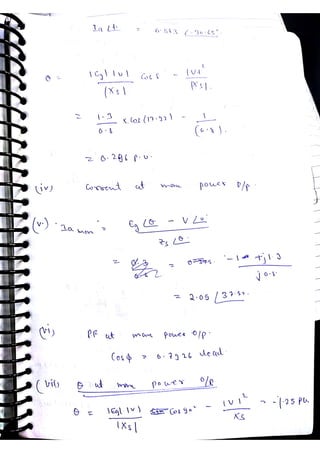 Ia LL = 0.543 ∠-20.65°
Q = |Eg| |V| / |Xs| cos δ - |V|² / |Xs|
= 1.3 / 0.8 × cos (17.92) - 1 / (0.8)
= 0.286 P.U.
(iv) Current at max power o/p.
(v) Ia max = Eg∠θ - V∠0 / Zs∠θ
= -1 + j1.3 / j0.8
= 2.05 ∠37.5°
(vi) PF at max power o/p.
Cos φ = 0.7926 lead
(vii) Q at max power o/p
Q = |Eg| |V| / |Xs| Cos 90° - |V|² / Xs = -1.25 PU